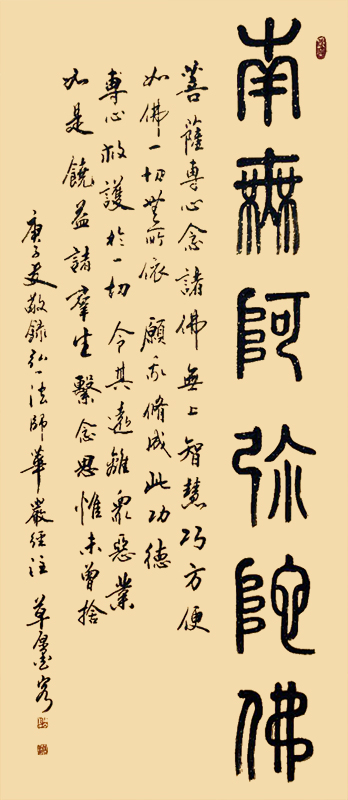 南無阿弥陀佛
菩薩專心念諸佛無上智慧巧方便
如佛一切無所依願我脩成此功德
專心救護於一切令其遠離眾惡業
如是饒益諸羣生繫念思惟未曾捨
庚子夏敬錄弘一法師華嚴經注草原墨客